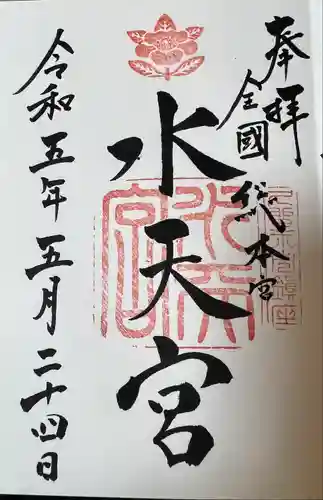 奉拝
全國総本宮
水天宮
令和五年五月二十四日